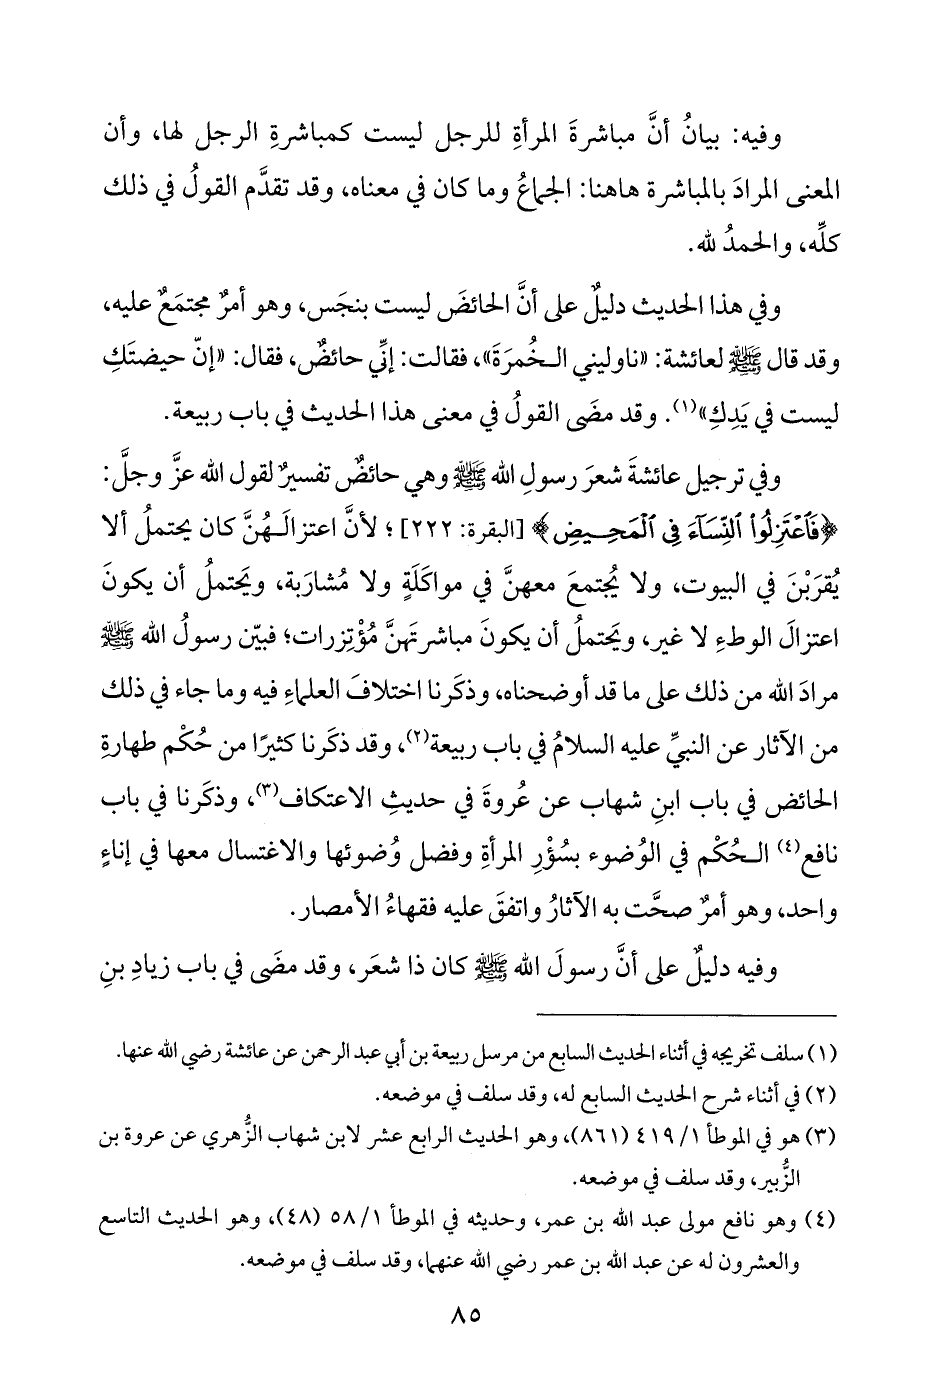 وفيه: بيانُ أنَّ مباشرةَ المرأةِ للرجل ليست كمباشرةِ الرجل لها، وأن
المعنى المرادَ بالمباشرة هاهنا: الجماعُ وما كان في معناه، وقد تقدَّم القولُ في ذلك
كلِّه، والحمدُ لله.
وفي هذا الحديث دليلٌ على أنَّ الحائضَ ليست بنجَس، وهو أمرٌ مجتمَعٌ عليه،
وقد قال ﷺ لعائشة: «ناوليني الـخُمرَةَ»، فقالت: إنِّي حائضٌ، فقال: «إنّ حيضتَكِ
ليست في يَدِكِ»(١). وقد مضَى القولُ في معنى هذا الحديث في باب ربيعة.
وفي ترجيل عائشةَ شعرَ رسولِ الله ﷺ وهي حائضٌ تفسيرٌ لقول الله عزَّ وجلَّ:
﴿فَٱعْتَزِلُوا۟ ٱلنِّسَآءَ فِى ٱلْمَحِيضِ﴾ [البقرة: ٢٢٢]؛ لأنَّ اعتزالَـهُنَّ كان يحتملُ ألا
يُقرَبْنَ في البيوت، ولا يُجتمعَ معهنَّ في مواكَلَةٍ ولا مُشارَبة، ويَحتملُ أن يكونَ
اعتزالَ الوطءِ لا غير، ويَحتملُ أن يكونَ مباشرتَهنَّ مُؤْتِزرات؛ فبيّن رسولُ الله ﷺ
مرادَ الله من ذلك على ما قد أوضحناه، وذكَرنا اختلافَ العلماءِ فيه وما جاء في ذلك
من الآثار عن النبيِّ عليه السلامُ في باب ربيعة(٢)، وقد ذكَرنا كثيرًا من حُكْم طهارةِ
الحائض في باب ابنِ شهاب عن عُروةَ في حديثِ الاعتكاف(٣)، وذكَرنا في باب
نافع(٤) الـحُكْم في الوُضوء بسُؤْرِ المرأةِ وفضل وُضوئها والاغتسال معها في إناءٍ
واحد، وهو أمرٌ صحَّت به الآثارُ واتفقَ عليه فقهاءُ الأمصار.
وفيه دليلٌ على أنَّ رسولَ الله ﷺ كان ذا شعَر، وقد مضَى في باب زيادِ بنِ
(١) سلف تخريجه في أثناء الحديث السابع من مرسل ربيعة بن أبي عبد الرحمن عن عائشة رضي الله عنها.
(٢) في أثناء شرح الحديث السابع له، وقد سلف في موضعه.
(٣) هو في الموطأ ١/ ٤١٩ (٨٦١)، وهو الحديث الرابع عشر لابن شهاب الزُّهري عن عروة بن
الزُّبير، وقد سلف في موضعه.
(٤) وهو نافع مولى عبد الله بن عمر، وحديثه في الموطأ ١/ ٥٨ (٤٨)، وهو الحديث التاسع
والعشرون له عن عبد الله بن عمر رضي الله عنهما، وقد سلف في موضعه.
٨٥